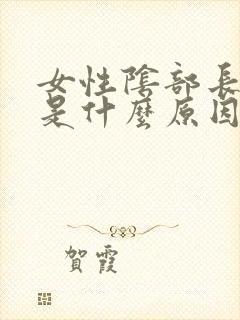 女性陰部長
是什麼原因
賀霞